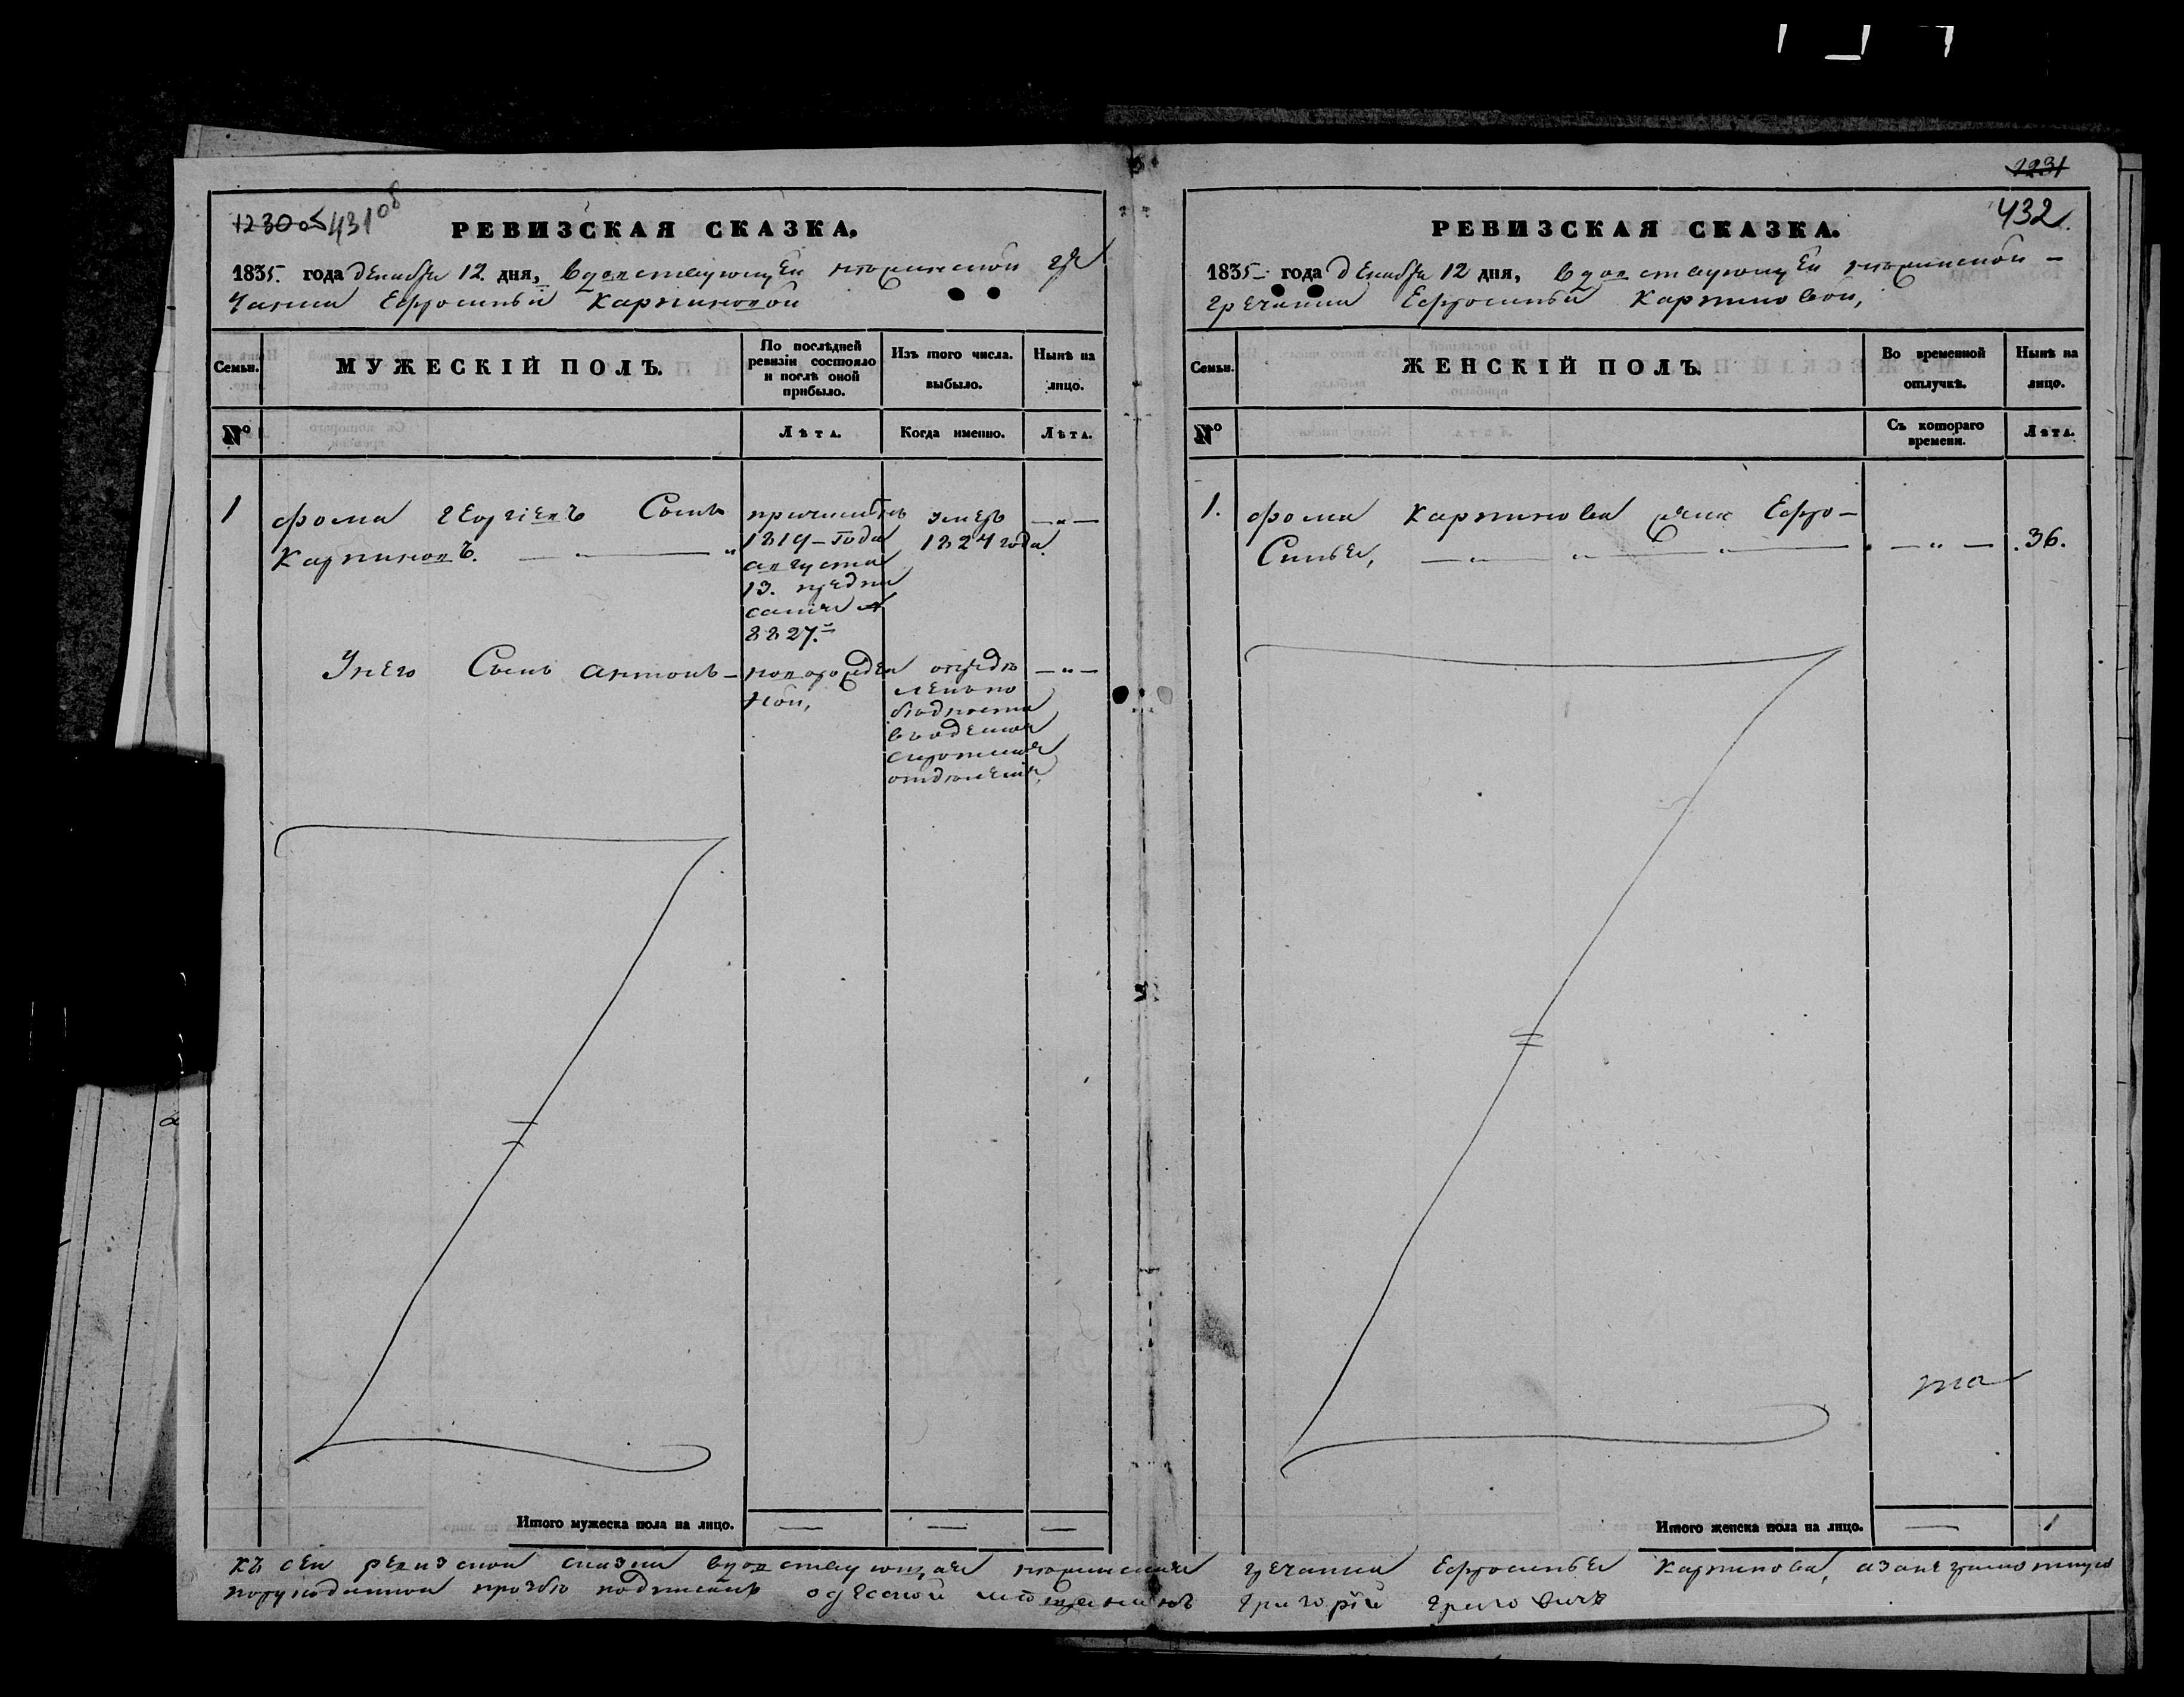 1230 об 431 об
РЕВИЗСКАЯ СКАЗКА.
1835. года декабря 12 дня, вдовствующей нежинской гре
чанки Ефросиньи Карпиновой
Семьи.
МУЖЕСКІЙ ПОЛЪ.
По послѣдней ревизіи состояло и послѣ оной прибыло.
Изъ того числа. выбыло.
Нынѣ на лицо.
№
Лѣта.
Когда именно.
Лѣта.
1
Фома Георгіевъ Сынъ
Карпиновъ.
причисленъ
1819 года
августа
13. предпи
саніем
8827.
умеръ
1824 года
— " —
У него Сынъ Антонъ —
новорожден
ной,
опредѣ
ленъ по
бѣдности
в одесское
сиротское
отдѣленіе
— " —
Итого мужеска пола на лицо.
— — —
1231
432.
РЕВИЗСКАЯ СКАЗКА.
1835 года декабря 12 дня, вдовствующей нежинской —
гречанки Ефросиньи Карпиновой,
Семьи.
ЖЕНСКІЙ ПОЛЪ.
Во временной отлучкѣ.
Нынѣ на лицо.
№
Съ котораго времени.
Лѣта.
1.
Фомы Карпинова жена Ефро—
Синья,
— " —
36.
Итого женска пола на лицо.
— 1
Къ сей ревизской сказки вдовствующая нежинская гречанка Ефросинья Карпинова, а за неграмотную
по рукоданной прозбѣ подписалъ одесской мѣщанинъ Григорій Григовичъ